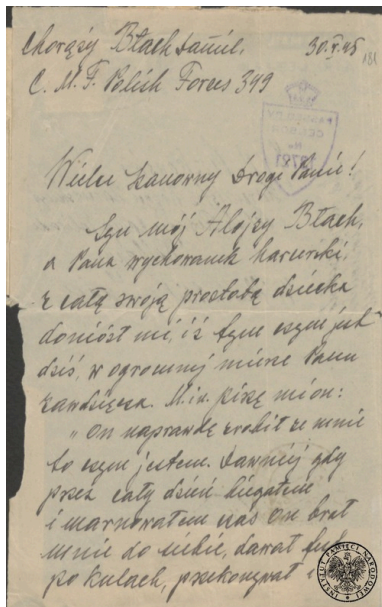 Chorąży Błach Daniel.
30.V.45
181
C. M. F. Polish Forces 349
Wielce Szanowny Drogi Panie!
Syn mój Alojzy Błach,
a Pana wychowanek harcerski,
z całą swoją prostotą dziecka
doniósł mi, iż tym czym jest
dziś, w ogromnej mierze Panu
zawdzięcza. M.in. pisze mi on:
"On naprawdę zrobił ze mnie
to czym jestem. Dawniej gdy
przez cały dzień biegałem
i marnowałem czas On brał
mnie do siebie, dawał
po kulach, przekonywał
INSTYTUT PAMIĘCI NARODOWEJ